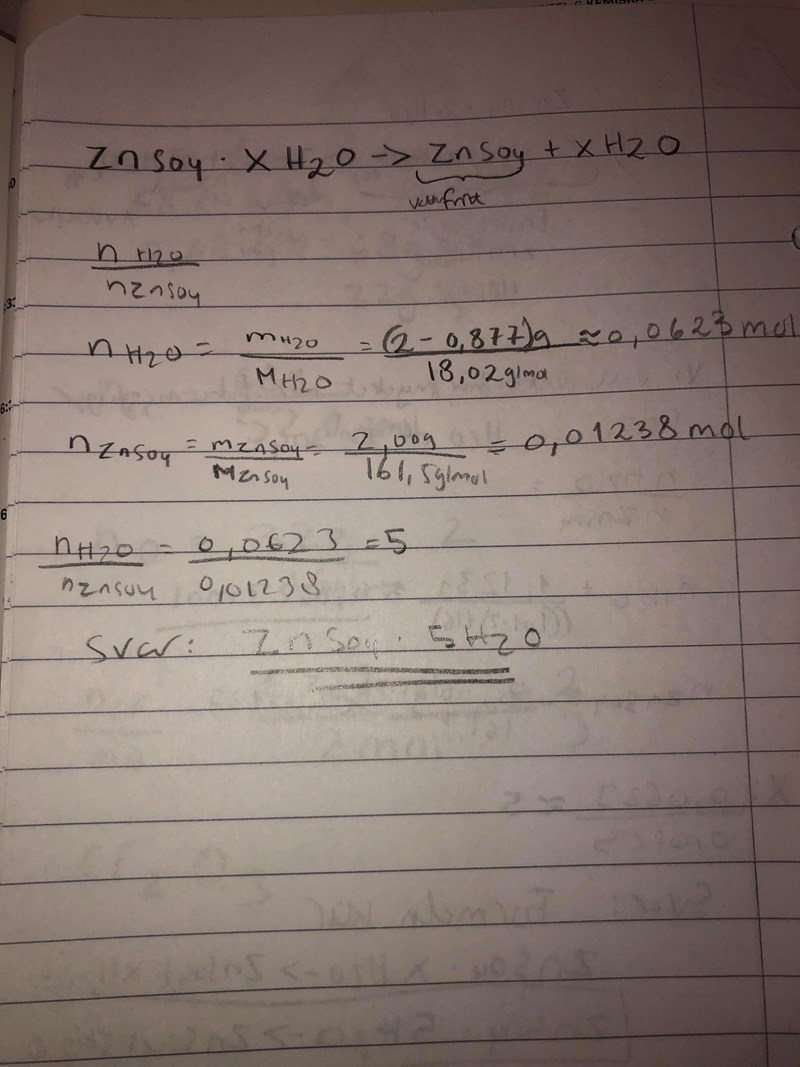 ZnSO4 · X H2O -> ZnSO4 + X H2O
vattenfritt
n H2O / nZnSO4
n H2O = mH2O / MH2O = (2-0,877)g / 18,02g/mol ≈ 0,0623 mol
n ZnSO4 = mZnSO4 / MZnSO4 = 2,00g / 161,5g/mol = 0,01238 mol
nH2O / nZnSO4 = 0,0623 / 0,01238 = 5
Svar: ZnSO4 · 5H2O